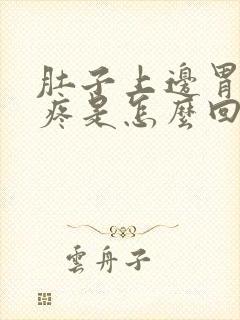 肚子上邊胃
疼是怎麼回
雲舟子